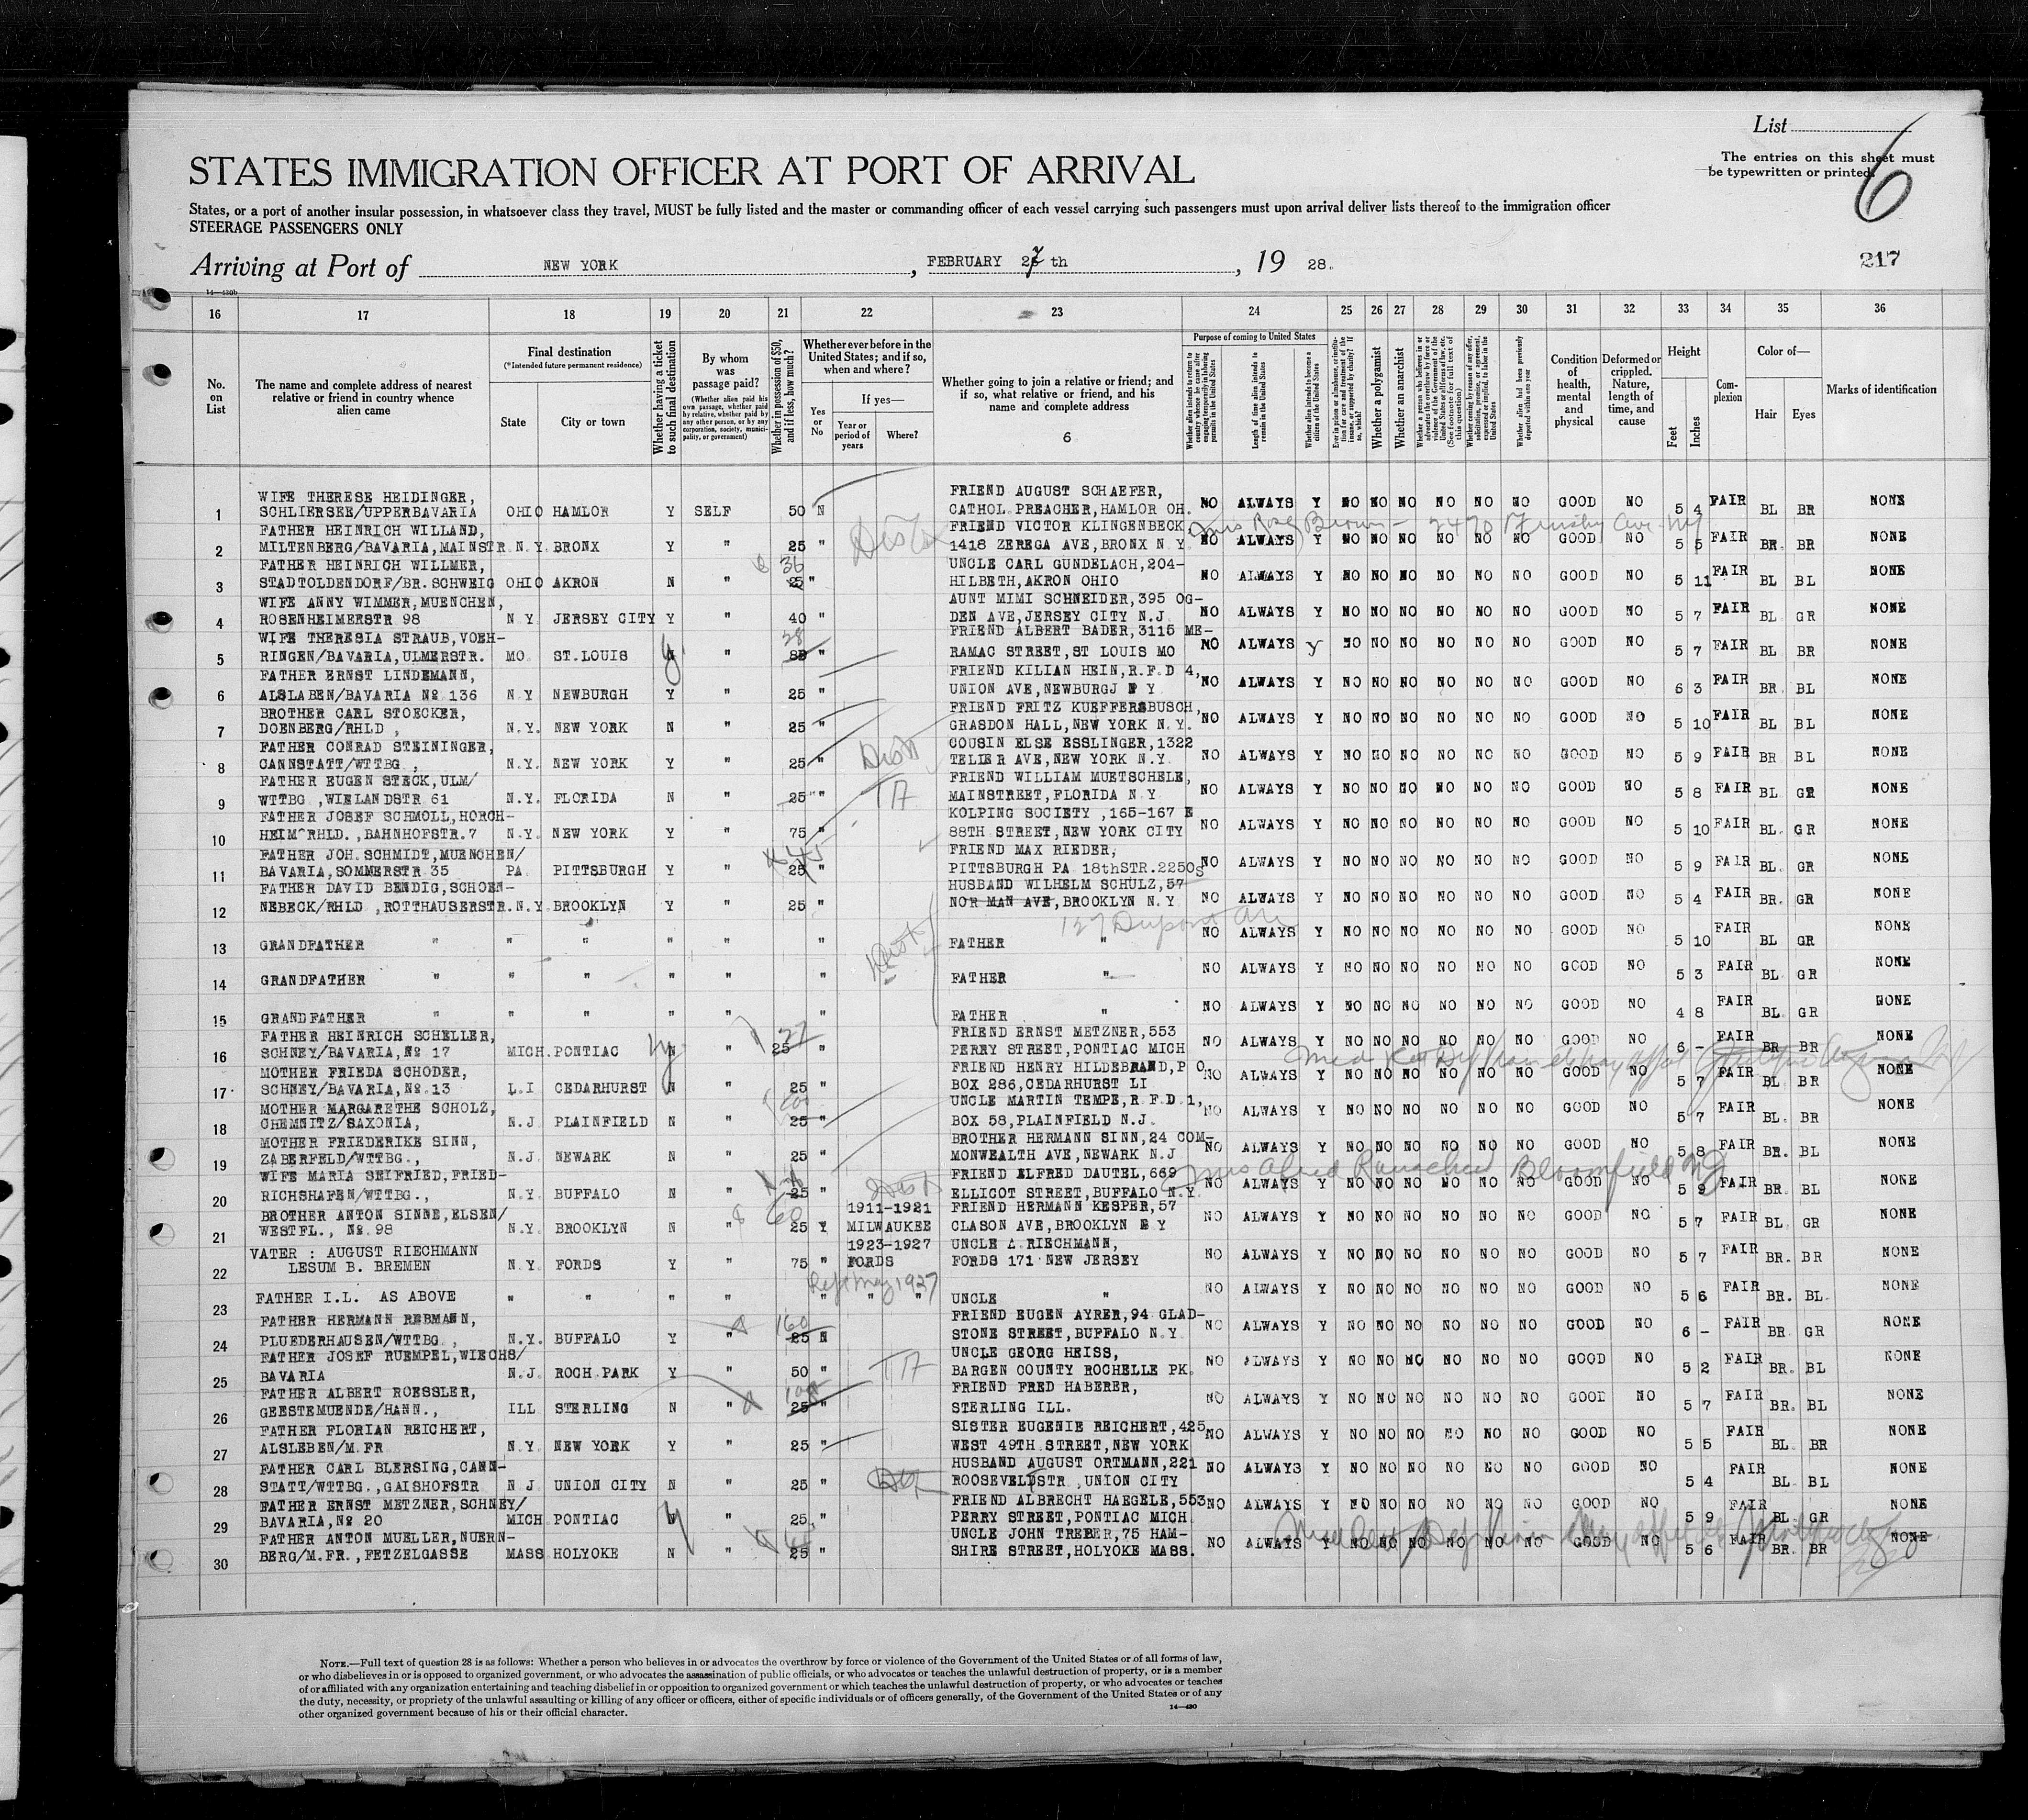 List
6
The entries on this sheet must
be typewritten or printed.
STATES IMMIGRATION OFFICER AT PORT OF ARRIVAL
States, or a port of another insular possession, in whatsoever class they travel, MUST be fully listed and the master or commanding officer of each vessel carrying such passengers must upon arrival deliver lists thereof to the immigration officer
STEERAGE PASSENGERS ONLY
Arriving at Port of NEW YORK, FEBRUARY 27th, 19 28.
217
14—430b
16 17 18 19 20 21 22 23 24 25 26 27 28 29 30 31 32 33 34 35 36
No. on List
The name and complete address of nearest relative or friend in country whence alien came
Final destination
(*Intended future permanent residence)
State
City or town
Whether having a ticket to such final destination
By whom was passage paid?
(Whether alien paid his own passage, whether paid by relative, whether paid by any other person, or by any corporation, society, municipality, or government)
Whether in possession of $50, and if less, how much?
Whether ever before in the United States; and if so, when and where?
Yes or No
If yes—
Year or period of years
Where?
Whether going to join a relative or friend; and if so, what relative or friend, and his name and complete address
6
Purpose of coming to United States
Length of time alien intends to remain in the United States
Whether alien intends to become a citizen of the United States
Whether a polygamist
Whether an anarchist
Whether alien had been previously deported within one year
Condition of health, mental and physical
Deformed or crippled. Nature, length of time, and cause
Height
Feet
Inches
Complexion
Color of—
Hair
Eyes
Marks of identification
WIFE THERESE HEIDINGER, FRIEND AUGUST SCHAEFER,
1 SCHLIERSEE/UPPERBAVARIA OHIO HAMLOR Y SELF 50 N CATHOL.PREACHER,HAMLOR OH. NO ALWAYS Y NO NO NO NO NO NO GOOD NO 5 4 FAIR BL BR NONE
FATHER HEINRICH WILLAND, FRIEND VICTOR KLINGENBECK
2 MILTENBERG/BAVARIA,MAINSTR. N.Y. BRONX Y " 25 " 1418 ZEREGA AVE,BRONX N Y NO ALWAYS Y NO NO NO NO NO NO GOOD NO 5 5 FAIR BR. BR NONE
FATHER HEINRICH WILLMER, 36 UNCLE CARL GUNDELACH,204-
3 STADTOLDENDORF/BR.SCHWEIG OHIO AKRON N " 25 " HILBETH,AKRON OHIO NO ALWAYS Y NO NO NO NO NO NO GOOD NO 5 11 FAIR BL BL NONE
WIFE ANNY WIMMER,MUENCHEN, AUNT MIMI SCHNEIDER,395 OG-
4 ROSENHEIMERSTR 98 N Y JERSEY CITY Y " 40 " DEN AVE,JERSEY CITY N.J. NO ALWAYS Y NO NO NO NO NO NO GOOD NO 5 7 FAIR BL GR NONE
WIFE THERESIA STRAUB,VOEH- 28 FRIEND ALBERT BADER,3115 ME-
5 RINGEN/BAVARIA,ULMERSTR. MO. ST.LOUIS y " " RAMAC STREET,ST LOUIS MO NO ALWAYS y NO NO NO NO NO NO GOOD NO 5 7 FAIR BL BR NONE
FATHER ERNST LINDEMANN, FRIEND KILIAN HEIN,R.F.D 4,
6 ALSLABEN/BAVARIA № 136 N Y NEWBURGH Y " 25 " UNION AVE,NEWBURGJ N Y NO ALWAYS Y NO NO NO NO NO NO GOOD NO 6 3 FAIR BR. BL NONE
BROTHER CARL STOECKER, FRIEND FRITZ KUEFFERSBUSCH,
7 DOENBERG/RHLD , N.Y. NEW YORK N " 25 " GRASDON HALL,NEW YORK N.Y. NO ALWAYS Y NO NO NO NO NO NO GOOD NO 5 10 FAIR BL BL NONE
FATHER CONRAD STEININGER, COUSIN ELSE ESSLINGER,1322
8 CANNSTATT/WTTBG , N.Y. NEW YORK Y " 25 " TELIER AVE,NEW YORK N.Y. NO ALWAYS Y NO NO NO NO NO NO GOOD NO 5 9 FAIR BR BL NONE
FATHER EUGEN STECK,ULM/ FRIEND WILLIAM MUETSCHELE,
9 WTTBG ,WIELANDSTR 61 N.Y. FLORIDA N " 25 " MAINSTREET,FLORIDA N Y NO ALWAYS Y NO NO NO NO NO NO GOOD NO 5 8 FAIR BL GR NONE
FATHER JOSEF SCHMOLL,HORCH- KOLPING SOCIETY ,165-167 E
10 HEIM^RHLD.,BAHNHOFSTR.7 N.Y. NEW YORK Y " 75 " 88TH STREET,NEW YORK CITY NO ALWAYS Y NO NO NO NO NO NO GOOD NO 5 10 FAIR BL. GR NONE
FATHER JOH.SCHMIDT,MUENCHEN/ 45 FRIEND MAX RIEDER,
11 BAVARIA,SOMMERSTR 35 PA PITTSBURGH Y " 25 " PITTSBURGH PA 18thSTR.2250S NO ALWAYS Y NO NO NO NO NO NO GOOD NO 5 9 FAIR BL. GR NONE
FATHER DAVID BENDIG,SCHOEN- HUSBAND WILHELM SCHULZ,57
12 NEBECK/RHLD ,ROTTHAUSERSTR. N.Y BROOKLYN Y " 25 " NORMAN AVE,BROOKLYN N Y NO ALWAYS Y NO NO NO NO NO NO GOOD NO 5 4 FAIR BR. GR NONE
127 Dupont Ave
13 GRANDFATHER " " " " " " FATHER " NO ALWAYS Y NO NO NO NO NO NO GOOD NO 5 10 FAIR BL GR NONE
14 GRANDFATHER " " " " " " FATHER " NO ALWAYS Y NO NO NO NO NO NO GOOD NO 5 3 FAIR BL GR NONE
15 GRANDFATHER " " " " " " FATHER " NO ALWAYS Y NO NO NO NO NO NO GOOD NO 4 8 FAIR BL. GR QONE
FATHER HEINRICH SCHELLER, 27 FRIEND ERNST METZNER,553
16 SCHNEY/BAVARIA,№ 17 MICH. PONTIAC N " 25 " PERRY STREET,PONTIAC MICH NO ALWAYS Y NO NO NO NO NO NO GOOD NO 6 - FAIR BR BR NONE
MOTHER FRIEDA SCHODER, FRIEND HENRY HILDEBRAND,P O
17 SCHNEY/BAVARIA,№ 13 L.I CEDARHURST N " 25 " BOX 286,CEDARHURST LI NO ALWAYS Y NO NO NO NO NO NO GOOD NO 5 7 FAIR BL BR NONE
MOTHER MARGARETHE SCHOLZ, UNCLE MARTIN TEMPE,R F D 1,
18 CHEMNITZ/SAXONIA, N.J PLAINFIELD N " 25 " BOX 58,PLAINFIELD N.J. NO ALWAYS Y NO NO NO NO NO NO GOOD NO 5 7 FAIR BL. BR NONE
MOTHER FRIEDERIKE SINN, BROTHER HERMANN SINN,24 COM-
19 ZABERFELD/WTTBG., N.J. NEWARK N " 25 " MONWEALTH AVE,NEWARK N.J NO ALWAYS Y NO NO NO NO NO NO GOOD NO 5 8 FAIR BR. BL NONE
Bloomfield NJ
WIFE MARIA SEIFRIED,FRIED- FRIEND ELFRED DAUTEL,669
20 RICHSHAFEN/WTTBG., N.Y. BUFFALO N " 25 " ELLICOT STREET,BUFFALO N.Y. NO ALWAYS Y NO NO NO NO NO NO GOOD NO 5 9 FAIR BR. BL NONE
BROTHER ANTON SINNE,ELSEN/ 60 1911-1921 FRIEND HERMANN KESPER,57
21 WESTFL., №.98 N.Y. BROOKLYN N " 25 Y MILWAUKEE CLASON AVE,BROOKLYN N Y NO ALWAYS Y NO NO NO NO NO NO GOOD NO 5 7 FAIR BL. GR NONE
VATER : AUGUST RIECHMANN 1923-1927 UNCLE A.RIECHMANN,
22 LESUM B. BREMEN N.Y. FORDS Y " 75 " FORDS FORDS 171 NEW JERSEY NO ALWAYS Y NO NO NO NO NO NO GOOD NO 5 7 FAIR BR. BR NONE
Left May 1927
23 FATHER I.L. AS ABOVE " " " " " " " UNCLE " NO ALWAYS Y NO NO NO NO NO NO GOOD NO 5 6 FAIR BR. BL. NONE
FATHER HERMANN REBMANN, 160 FRIEND EUGEN AYRER,94 GLAD-
24 PLUEDERHAUSEN/WTTBG , N.Y. BUFFALO Y " 25 N STONE STREET,BUFFALO N.Y NO ALWAYS Y NO NO NO NO NO NO GOOD NO 6 - FAIR BR. GR NONE
FATHER JOSEF RUEMPEL,WIECHS/ UNCLE GEORG HEISS,
25 BAVARIA N.J. ROCH.PARK Y " 50 " BARGEN COUNTY ROCHELLE PK. NO ALWAYS Y NO NO NO NO NO NO GOOD NO 5 2 FAIR BR. BL NONE
FATHER ALBERT ROESSLER, 100 FRIEND FRED HABERER,
26 GEESTEMUENDE/HANN., ILL STERLING N " 25 " STERLING ILL. NO ALWAYS Y NO NO NO NO NO NO GOOD NO 5 7 FAIR BR. BL NONE
FATHER FLORIAN REICHERT, SISTER EUGENIE REICHERT,425
27 ALSLEBEN/M.FR N.Y. NEW YORK Y " 25 " WEST 49TH STREET,NEW YORK NO ALWAYS Y NO NO NO NO NO NO GOOD NO 5 5 FAIR BL BR NONE
FATHER CARL BLERSING,CANN- HUSBAND AUGUST ORTMANN,221
28 STATT/WTTBG.,GAISHOFSTR N J UNION CITY N " 25 " ROOSEVELDSTR ,UNION CITY NO ALWAYS Y NO NO NO NO NO NO GOOD NO 5 4 FAIR BL. BL NONE
FATHER ERNST METZNER,SCHNEY/ FRIEND ALBRECHT HAEGELE,553
29 BAVARIA,№ 20 MICH PONTIAC y " 25 " PERRY STREET,PONTIAC MICH NO ALWAYS Y NO NO NO NO NO NO GOOD NO 5 9 FAIR BL. GR NONE
FATHER ANTON MUELLER,NUERN- UNCLE JOHN TREBER,75 HAM-
30 BERG/M.FR.,FETZELGASSE MASS HOLYOKE N " 25 " SHIRE STREET,HOLYOKE MASS. NO ALWAYS Y NO NO NO NO NO NO GOOD NO 5 6 FAIR BR. BR NONE
NOTE.—Full text of question 28 is as follows: Whether a person who believes in or advocates the overthrow by force or violence of the Government of the United States or of all forms of law,
or who disbelieves in or is opposed to organized government, or who advocates the assassination of public officials, or who advocates or teaches the unlawful destruction of property, or is a member
of or affiliated with any organization entertaining and teaching disbelief in or opposition to organized government or which teaches the unlawful destruction of property, or who advocates or teaches
the duty, necessity, or propriety of the unlawful assaulting or killing of any officer or officers, either of specific individuals or of officers generally, of the Government of the United States or of any
other organized government because of his or their official character.
14—430